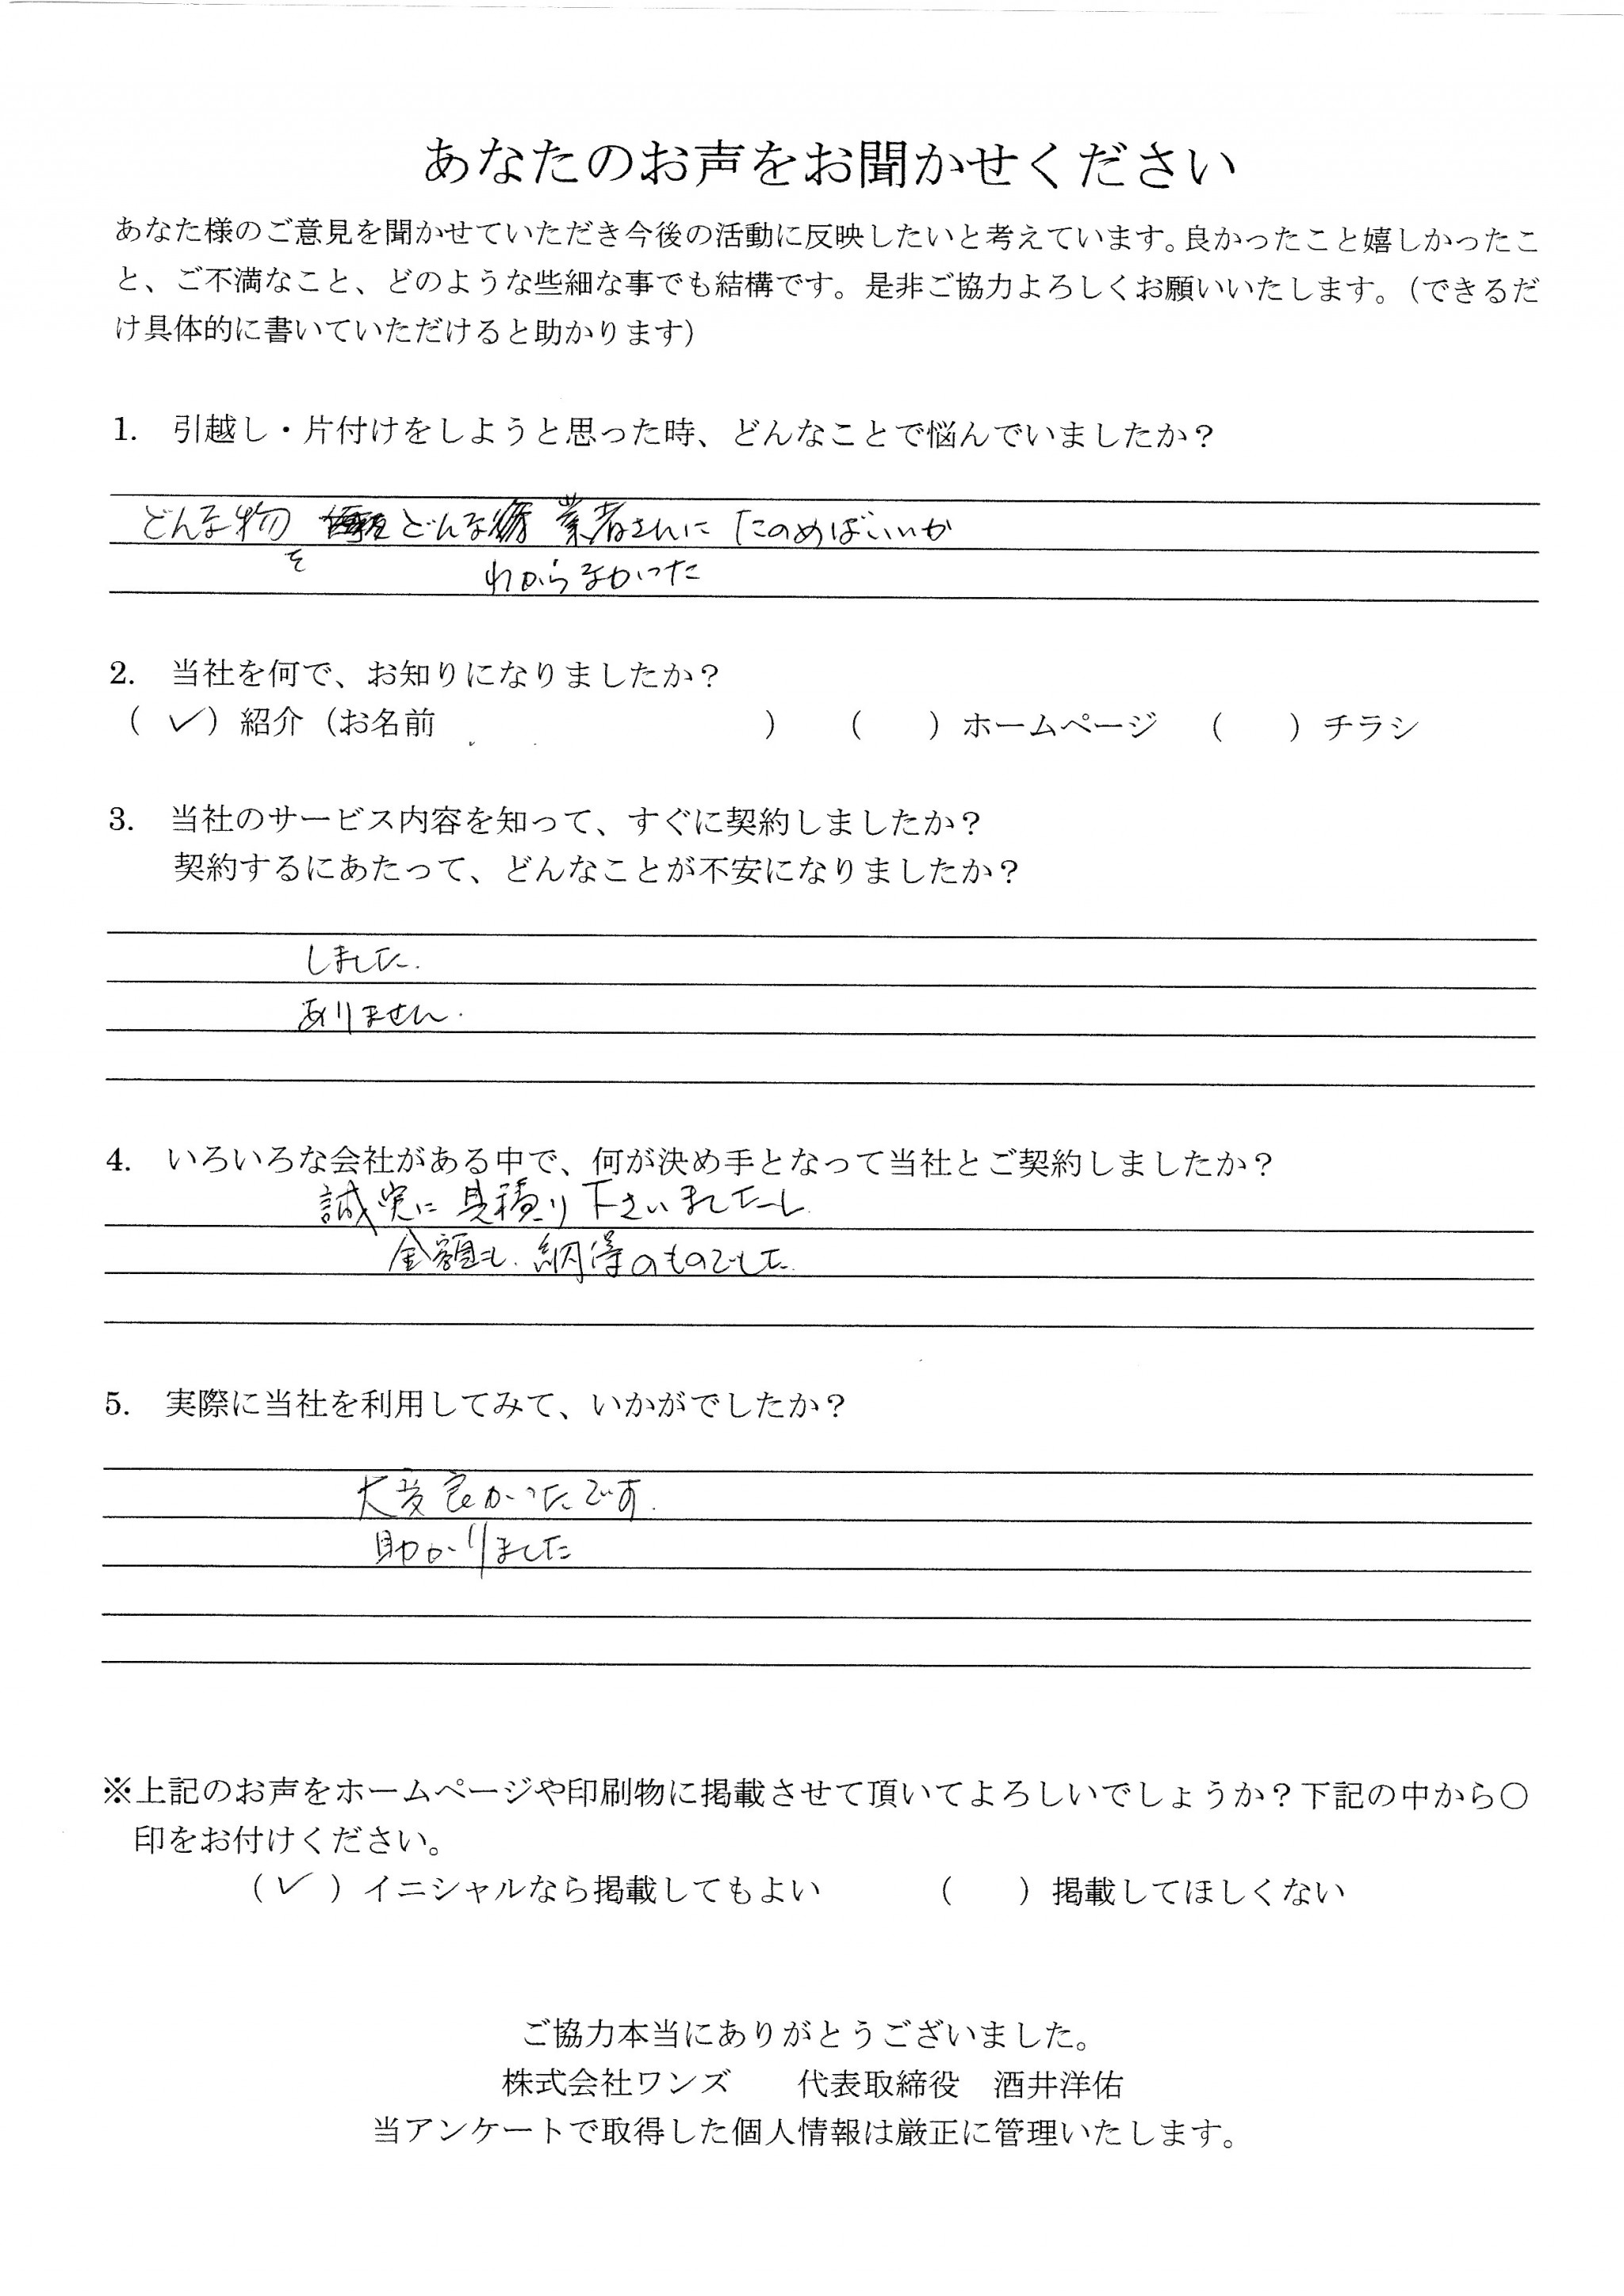 あなたのお声をお聞かせください
あなた様のご意見を聞かせていただき今後の活動に反映したいと考えています。良かったこと嬉しかったこ
と、ご不満なこと、どのような些細な事でも結構です。是非ご協力よろしくお願いいたします。（できるだ
け具体的に書いていただけると助かります）
1. 引越し・片付けをしようと思った時、どんなことで悩んでいましたか？
どんな物を どんな 業者さんに たのめばいいか
わからなかった
2. 当社を何で、お知りになりましたか？
（ ✓）紹介（お名前 ） （ ）ホームページ （ ）チラシ
3. 当社のサービス内容を知って、すぐに契約しましたか？
契約するにあたって、どんなことが不安になりましたか？
しました.
ありません.
4. いろいろな会社がある中で、何が決め手となって当社とご契約しましたか？
誠実に 見積り 下さいましたし
金額も. 納得のものでした.
5. 実際に当社を利用してみて、いかがでしたか？
大変良かったです.
助かりました
※上記のお声をホームページや印刷物に掲載させて頂いてよろしいでしょうか？下記の中から〇
印をお付けください。
（✓ ）イニシャルなら掲載してもよい （ ）掲載してほしくない
ご協力本当にありがとうございました。
株式会社ワンズ 代表取締役 酒井洋佑
当アンケートで取得した個人情報は厳正に管理いたします。